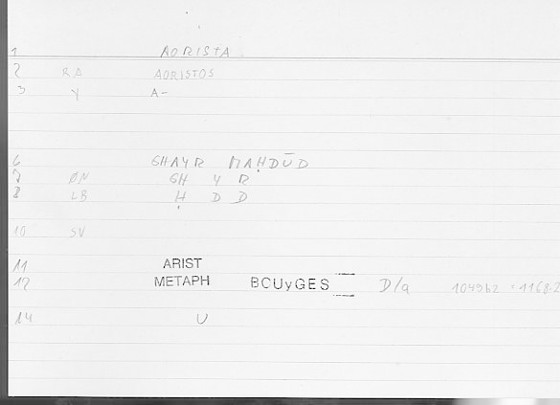 1 AORISTA
2 RA AORISTOS
3 Y A-
6 GHAYR MAḤDŪD
7 ØN GH Y R
8 LB Ḥ D D
10 SV
11 ARIST
12 METAPH BCUyGES D/a 1049b2
14 U